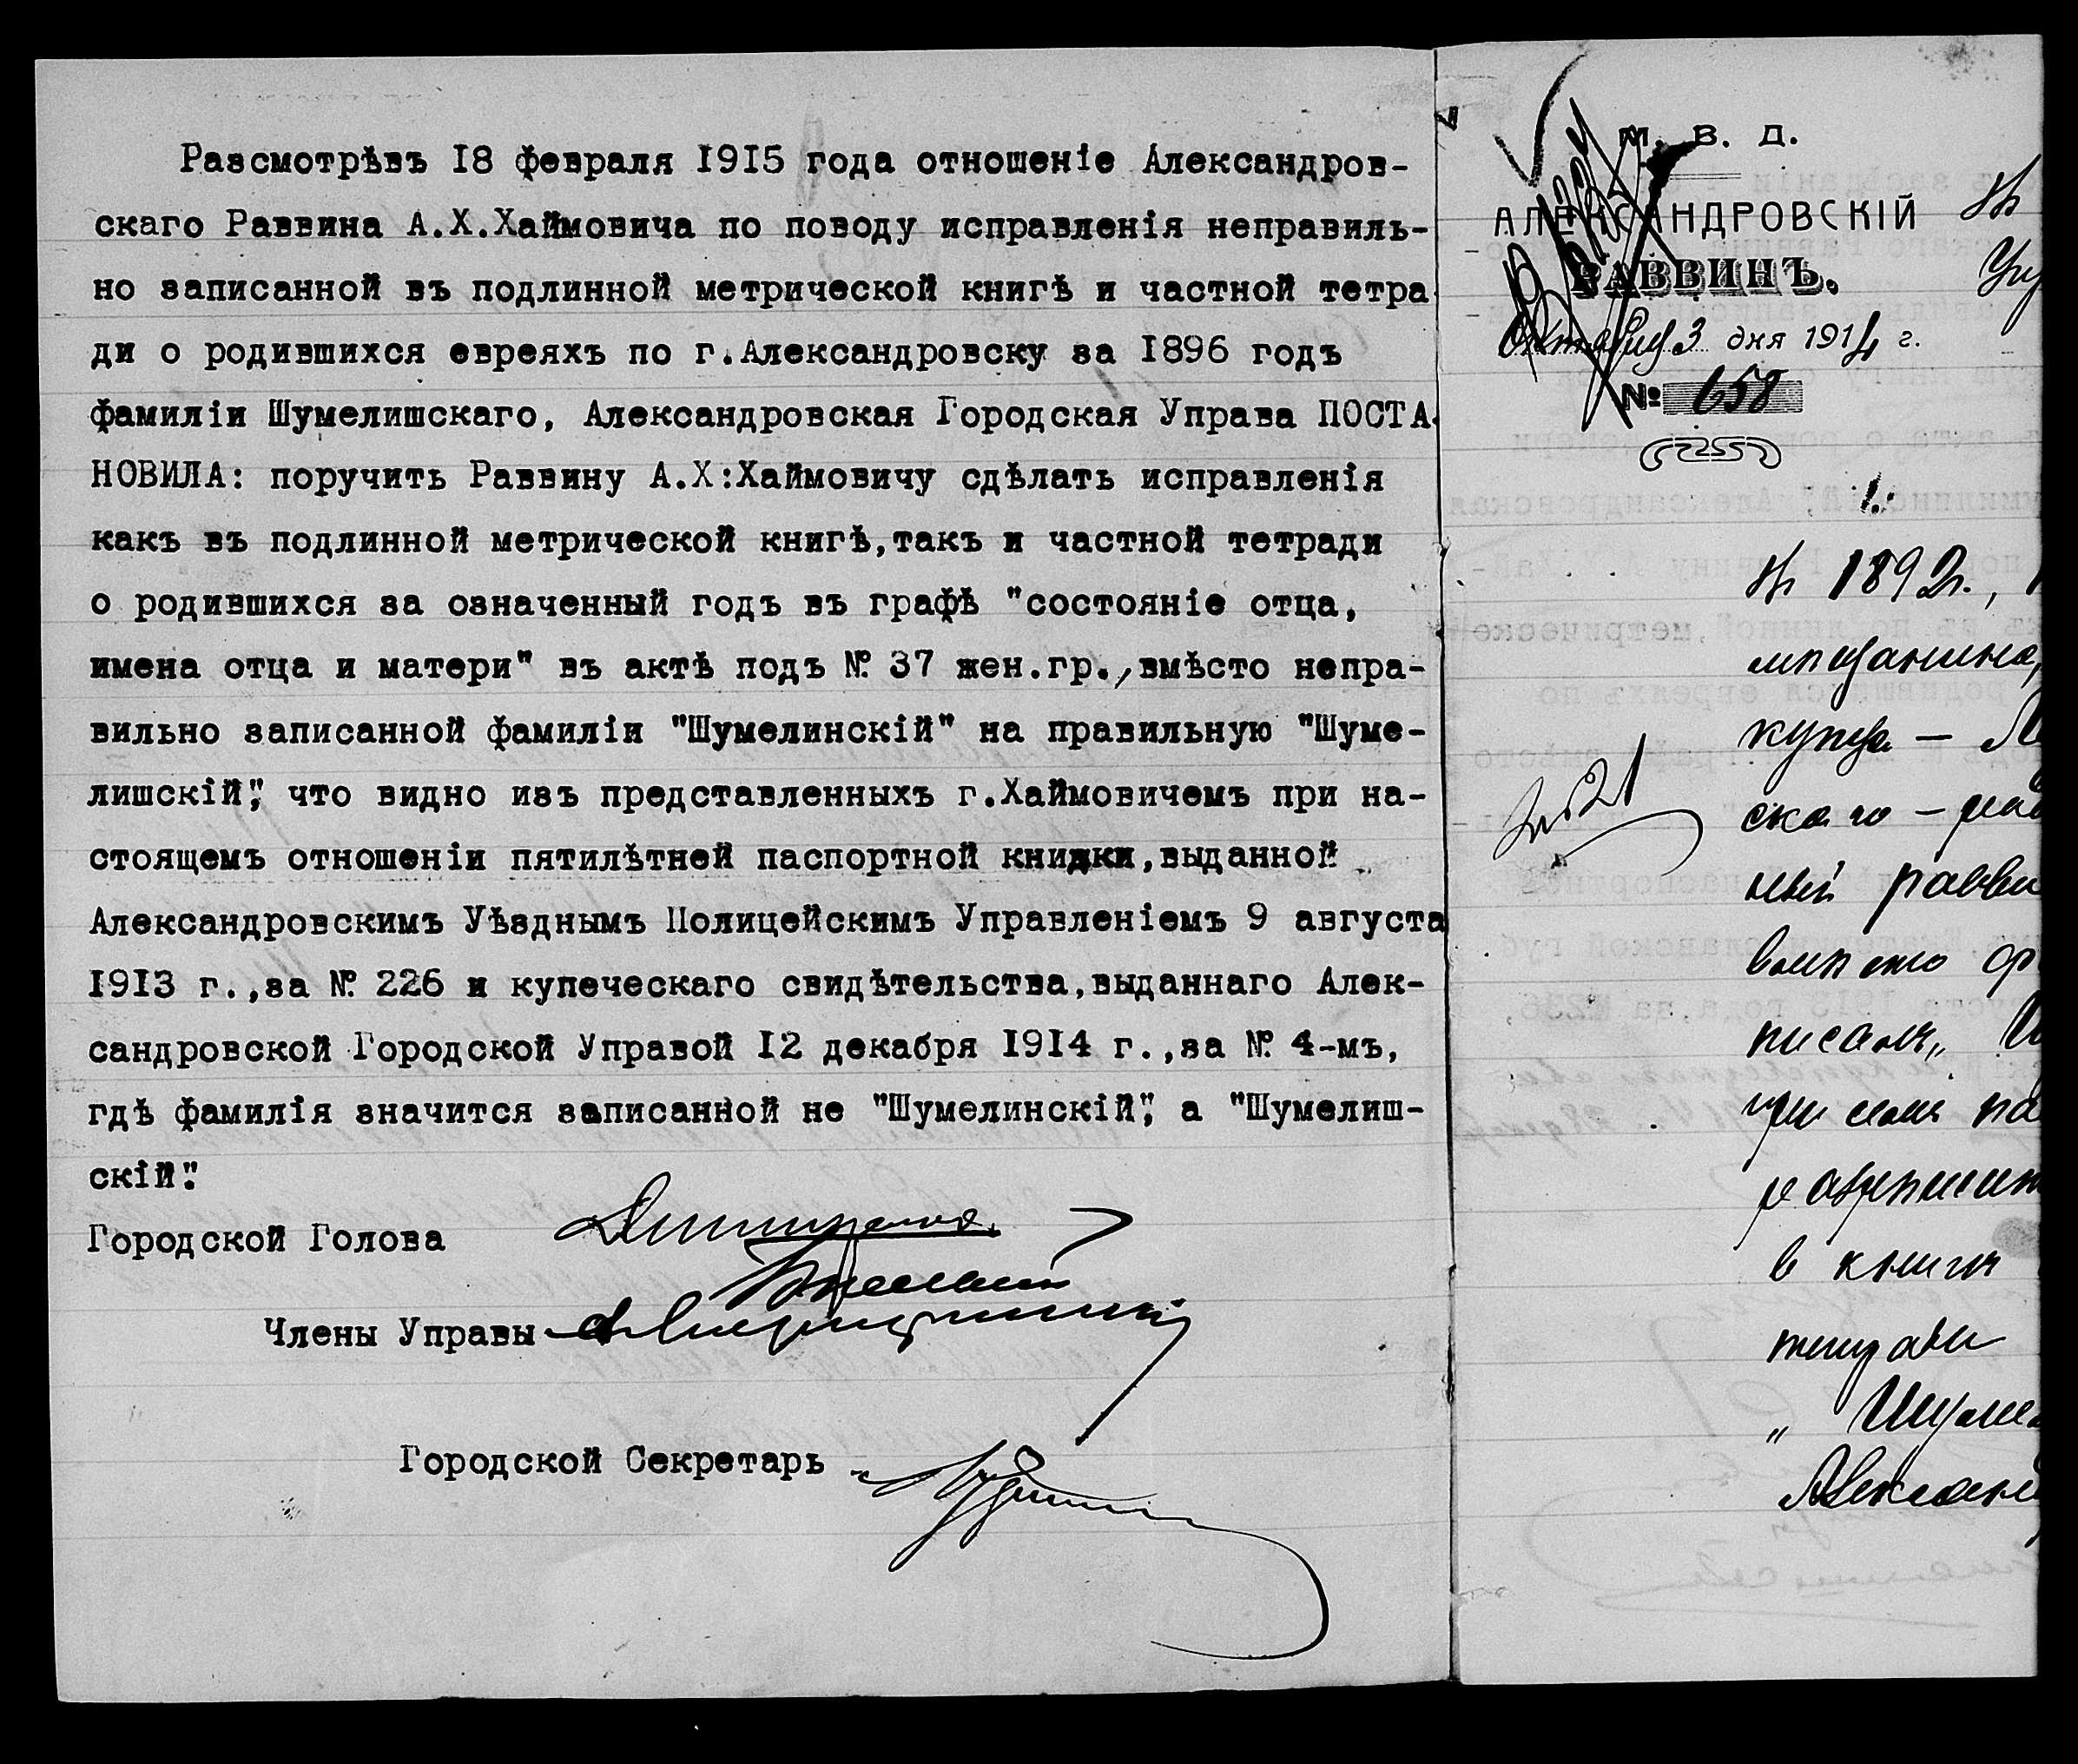 Разсмотрѣвъ 18 февраля 1915 года отношеніе Александров-
скаго Раввина А.Х.Хаймовича по поводу исправленія неправиль-
но записанной въ подлинной метрической книгѣ и частной тетра
ди о родившихся евреяхъ по г.Александровску за 1896 годъ
фамиліи Шумелишскаго, Александровская Городская Управа ПОСТА-
НОВИЛА: поручить Раввину А.Х:Хаймовичу сдѣлать исправленія
какъ въ подлинной метрической книгѣ,такъ и частной тетради
о родившихся за означенный годъ въ графѣ "состояніе отца,
имена отца и матери" въ актѣ подъ № 37 жен.гр., вмѣсто непра-
вильно записанной фамиліи "Шумелинскій" на правильную "Шуме-
лишскій", что видно изъ представленныхъ г.Хаймовичемъ при на-
стоящемъ отношеніи пятилѣтней паспортной книжки,выданной
Александровскимъ Уѣзднымъ Полицейскимъ Управленіемъ 9 августа
1913 г.,за № 226 и купеческаго свидѣтельства,выданнаго Алек-
сандровской Городской Управой 12 декабря 1914 г.,за № 4-мъ,
гдѣ фамилія значится записанной не "Шумелинскій", а "Шумелиш-
скій".
Городской Голова
Члены Управы
Городской Секретарь
М. В. Д.
АЛЕКСАНДРОВСКІЙ
РАВВИНЪ.
3 дня 1914 г.
№ 658
Въ
1.
Въ 1892г.,
мѣщанина,
купца —
скаго —
ный равви
вмѣсто
писалъ „
при семъ
разрѣшит
в книгѣ
тетради
„ Шумел
Александ